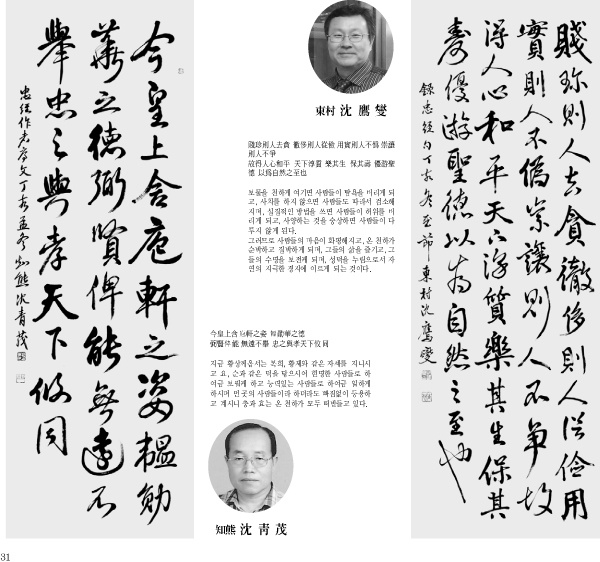 今皇上含庖軒之姿韞勛
華之德弼賢俾能無遠不
擧忠之與孝天下攸同
知熊沈青茂
東村 沈鷹燮
故得人心和平 天下淳質 樂其生 保其壽 優游聖
德 以爲自然之至也
보물을 천하게 여기면 사람들이 탐욕을 버리게 되
고, 사치를 하지 않으면 사람들도 따라서 검소해
지며, 실질적인 방법을 쓰면 사람들이 허위를 버
리게 되고, 사양하는 것을 숭상하면 사람들이 다
투지 않게 된다.
그러므로 사람들의 마음이 화평해지고, 온 천하가
순박하고 질박하게 되며, 그들의 삶을 즐기고, 그
들의 수명을 보전케 되며, 성덕을 누림으로서 자
연의 지극한 경지에 이르게 되는 것이다.
今皇上含庖軒之姿 韞勛華之德
弼賢俾能 無遠不擧 忠之與孝天下攸同
지금 황상께옵서는 복희, 황제와 같은 자세를 지니시
고 요, 순과 같은 덕을 닦으시어 현명한 사람들로 하
여금 보필케 하고 능력있는 사람들로 하여금 일하게
하시며 먼곳의 사람들이라 하더라도 빠짐없이 등용하
고 계시니 충과 효는 온 천하가 모두 떠받들고 있다.
知熊 沈靑茂
賤珍則人去貪徹侈則人從儉用
實則人不僞崇讓則人不爭故
得人心和平天下淳質樂其生保其
壽優游聖德以爲自然之至也
東村沈鷹燮
31